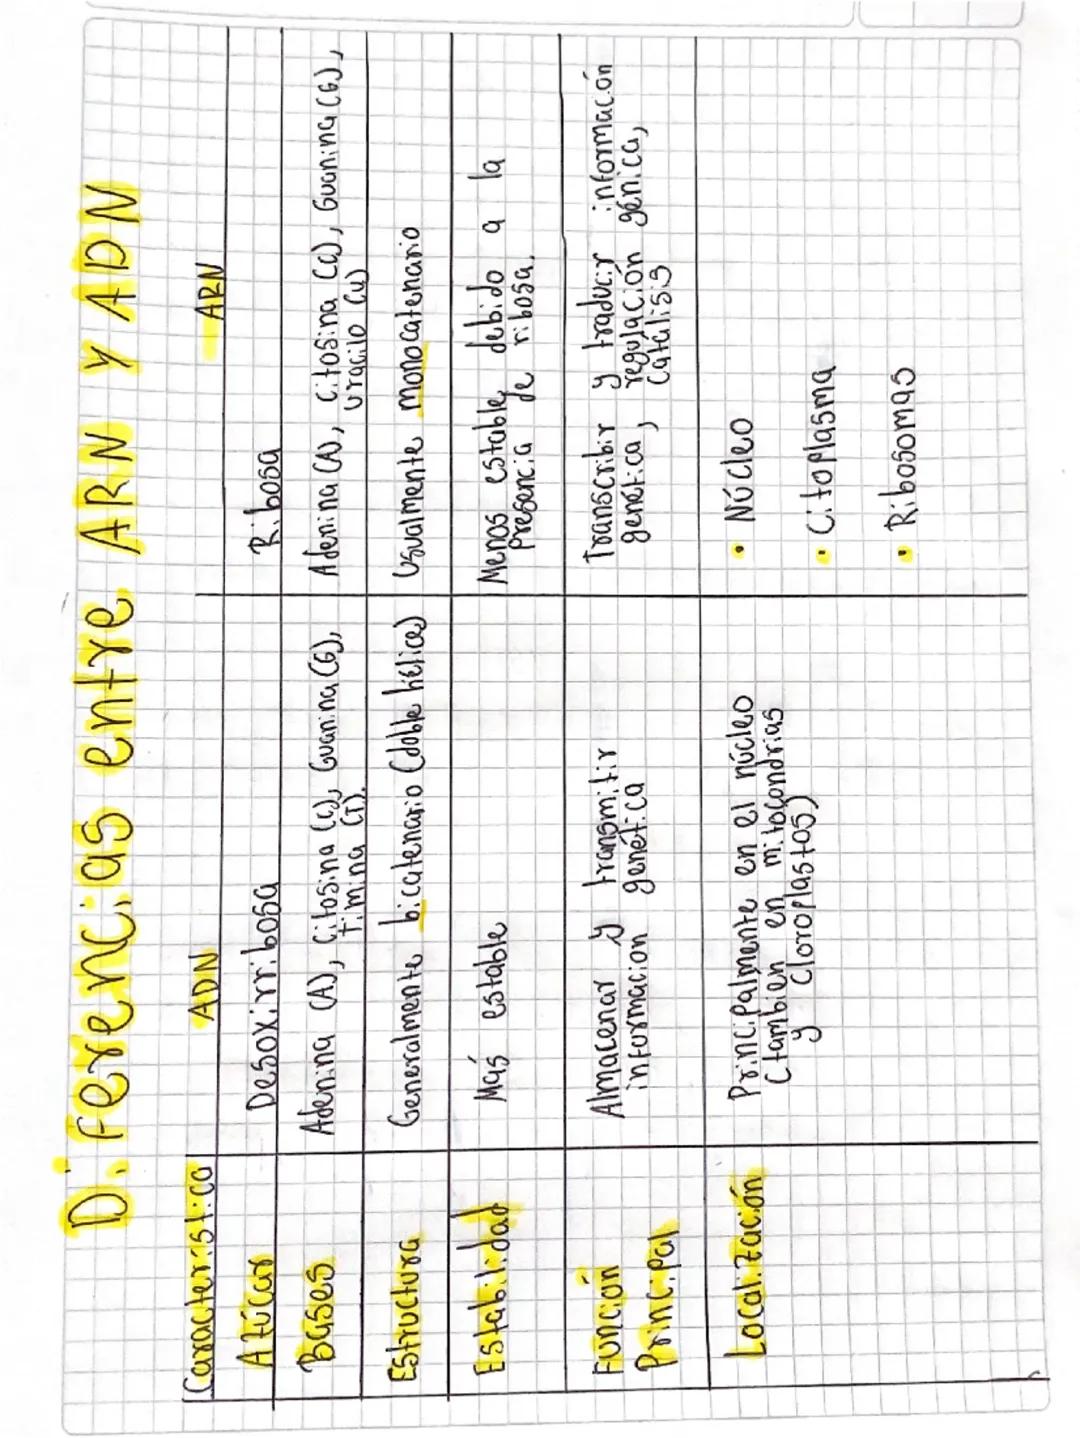 Diferencias entre ARN y ADN
Característica ADN ARN
Azúcar Desoxirribosa Ribosa
Bases Adenina (A), Citosina (C), Guanina (G),
Timina (T).
Adenina (A), Citosina (C), Guanina (G),
Uracilo (U)
Estructura Generalmente bicatenario (doble hélice) Usualmente monocatenario
Estabilidad Más estable
Menos estable, debido a la
Presencia de ribosa.
Función
Principal
Almacenar y transmitir
información genética
Transcribir y traducir información
genética, regulación génica,
Catálisis
Localización
Principalmente en el núcleo
(también en mitocondrias
y Cloroplastos)
• Núcleo
• Citoplasma
• Ribosomas